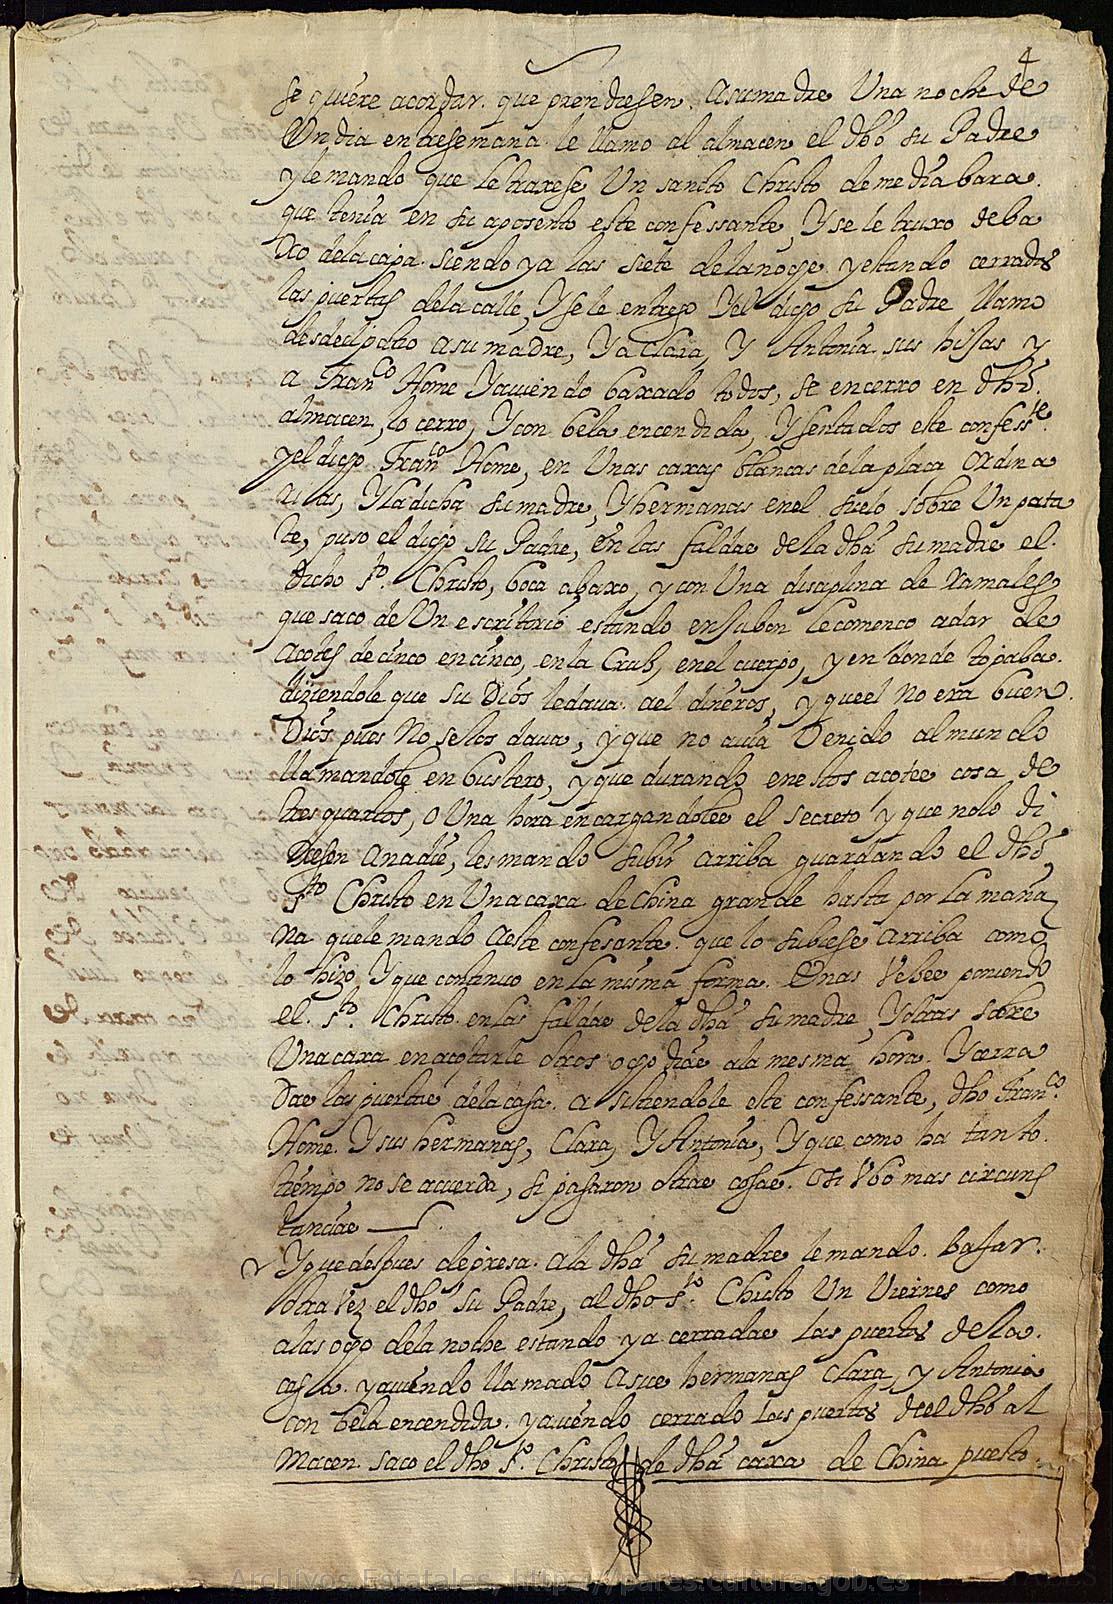 4
se quiere acordar. que prendiesen. asumadre Una noche de
Un dia entresemana. le llamo al almacen el dho su Padre
y le mando que letraxese Un sancto Christo demedia bara.
que tenia en su aposento este confessante, Y se le truxo deba
xo delacapa. siendo ya las siete delanoche. yestando cerradas
las puertas dela calle, Y sele entrego Yel dicho su Padre llamo
desdeelpatio asu madre, Y a Clara, Y Antonia sus hijas y
a Franco Home Yauiendo baxado todos, se encerro en dho.
almacen, lo cerro, Y con bela encendida, Y sentados este confesste.
yel dicho Franco Home, en Unas caxas blancas dela placa ordina
rias, Y ladicha su madre, Y hermanas enel suelo sobre Un peta
te, puso el dicho su Padre, en las faldas dela dha su madre el.
dicho sto. Christo, boca abaxo, y con Una disciplina de ramales
que saco de Un escritorio estando en Jubon le comenco adar de
acotes de cinco en cinco, en la Crus, enel cuerpo, y en donde topaba.
diziendole que su Dios ledaua. ael dineros, y queel no era buen
Dios pues No selos daua, y que no auia Venido al mundo
llamandole enbustero, y que durando enestos acotes cosa de
tresquartos, o Una hora encargandoles el secreto y que nolo di
xesen anadie, les mando subir arriba guardando el dho
sto Christo en Unacaxa de China grande hasta por la maña
na quele mando aeste confesante. que lo subiese arriba como
lo hizo, Y que continuo en la misma forma. Unas Veses poniendo
el. sto. Christo. en las faldas dela dha su madre, Y otras sobre
Unacaxa en acotarle otros ocho dias ala mesma hora. Y cerra
das las puertas delacasa. asistiendole este confessante, dho Franco.
Home. Y sus hermanas, Clara, Y Antonia, Y que como ha tanto.
tiempo no se acuerda, si pasaron otras cosas. o si Vbo mas circuns
tancias
Y que despues depresa. ala dha su madre le mando. Bajar.
otra Vez el dho su Padre, al dho sto. Christo Un Viernes como
alas ocho dela noche estando ya cerradas las puertas dela.
casa. yauiendo llamado asus hermanas Clara, y Antonia
con bela encendida. yauiendo cerrado las puertas del dho al
macen. saco el dho sto. Christo de dha caxa de China puesto.
Archivos Estatales, http://pares.cultura.gob.es